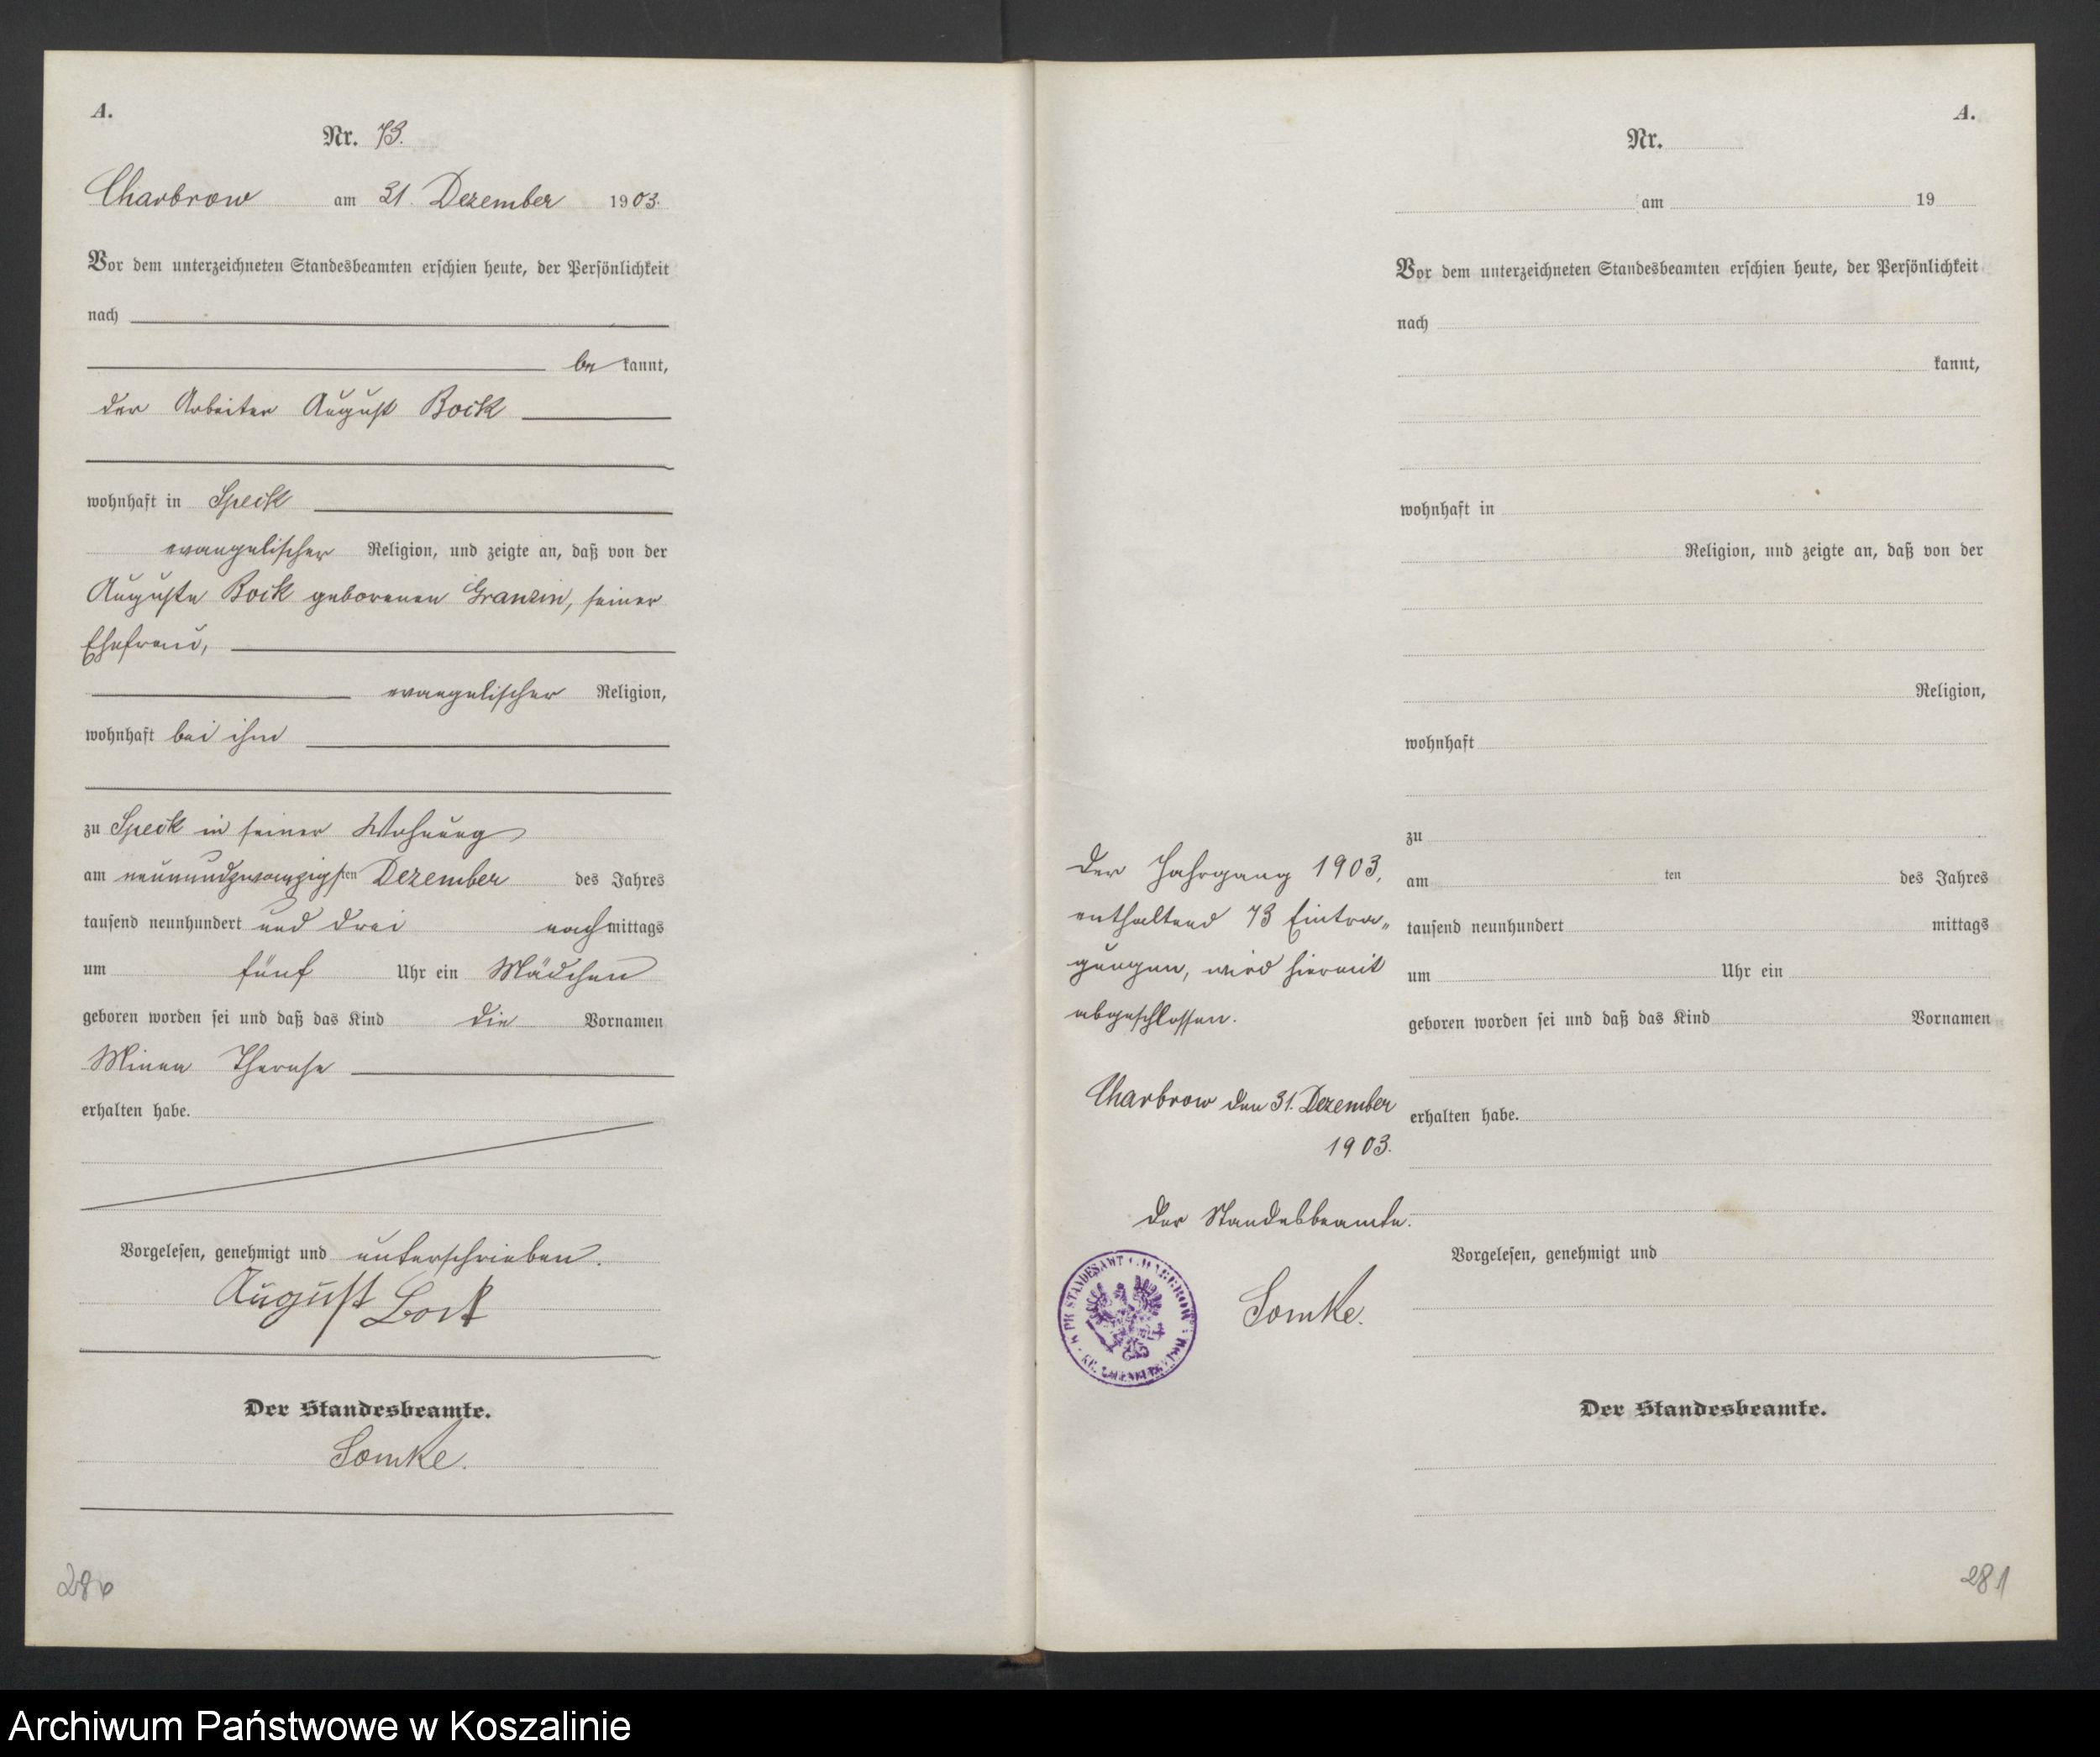 A.
Nr. 73.
Charbrow am 31. Dezember 1903.
Vor dem unterzeichneten Standesbeamten erschien heute, der Persönlichkeit
nach
be kannt,
der Arbeiter August Bock
wohnhaft in Speck
evangelischer Religion, und zeigte an, daß von der
Auguste Bock geborenen Granzin, seiner
Ehefrau,
evangelischer Religion,
wohnhaft bei ihm
zu Speck in seiner Wohnung
am neunundzwanzigsten Dezember des Jahres
tausend neunhundert und drei nachmittags
um fünf Uhr ein Mädchen
geboren worden sei und daß das Kind die Vornamen
Minna Therese
erhalten habe.
Vorgelesen, genehmigt und unterschrieben.
August Bock
Der Standesbeamte.
Somke.
280
A.
Nr.
am 19
Vor dem unterzeichneten Standesbeamten erschien heute, der Persönlichkeit
nach
kannt,
wohnhaft in
Religion, und zeigte an, daß von der
Religion,
wohnhaft
zu
am ten des Jahres
tausend neunhundert mittags
um Uhr ein
geboren worden sei und daß das Kind Vornamen
erhalten habe.
Vorgelesen, genehmigt und
Der Standesbeamte.
Der Jahrgang 1903,
enthaltend 73 Eintra„
gungen, wird hiermit
abgeschlossen.
Charbrow den 31. Dezember
1903.
Der Standesbeamte.
Somke.
K. PR. STANDESAMT CHARBROW
281
Archiwum Państwowe w Koszalinie